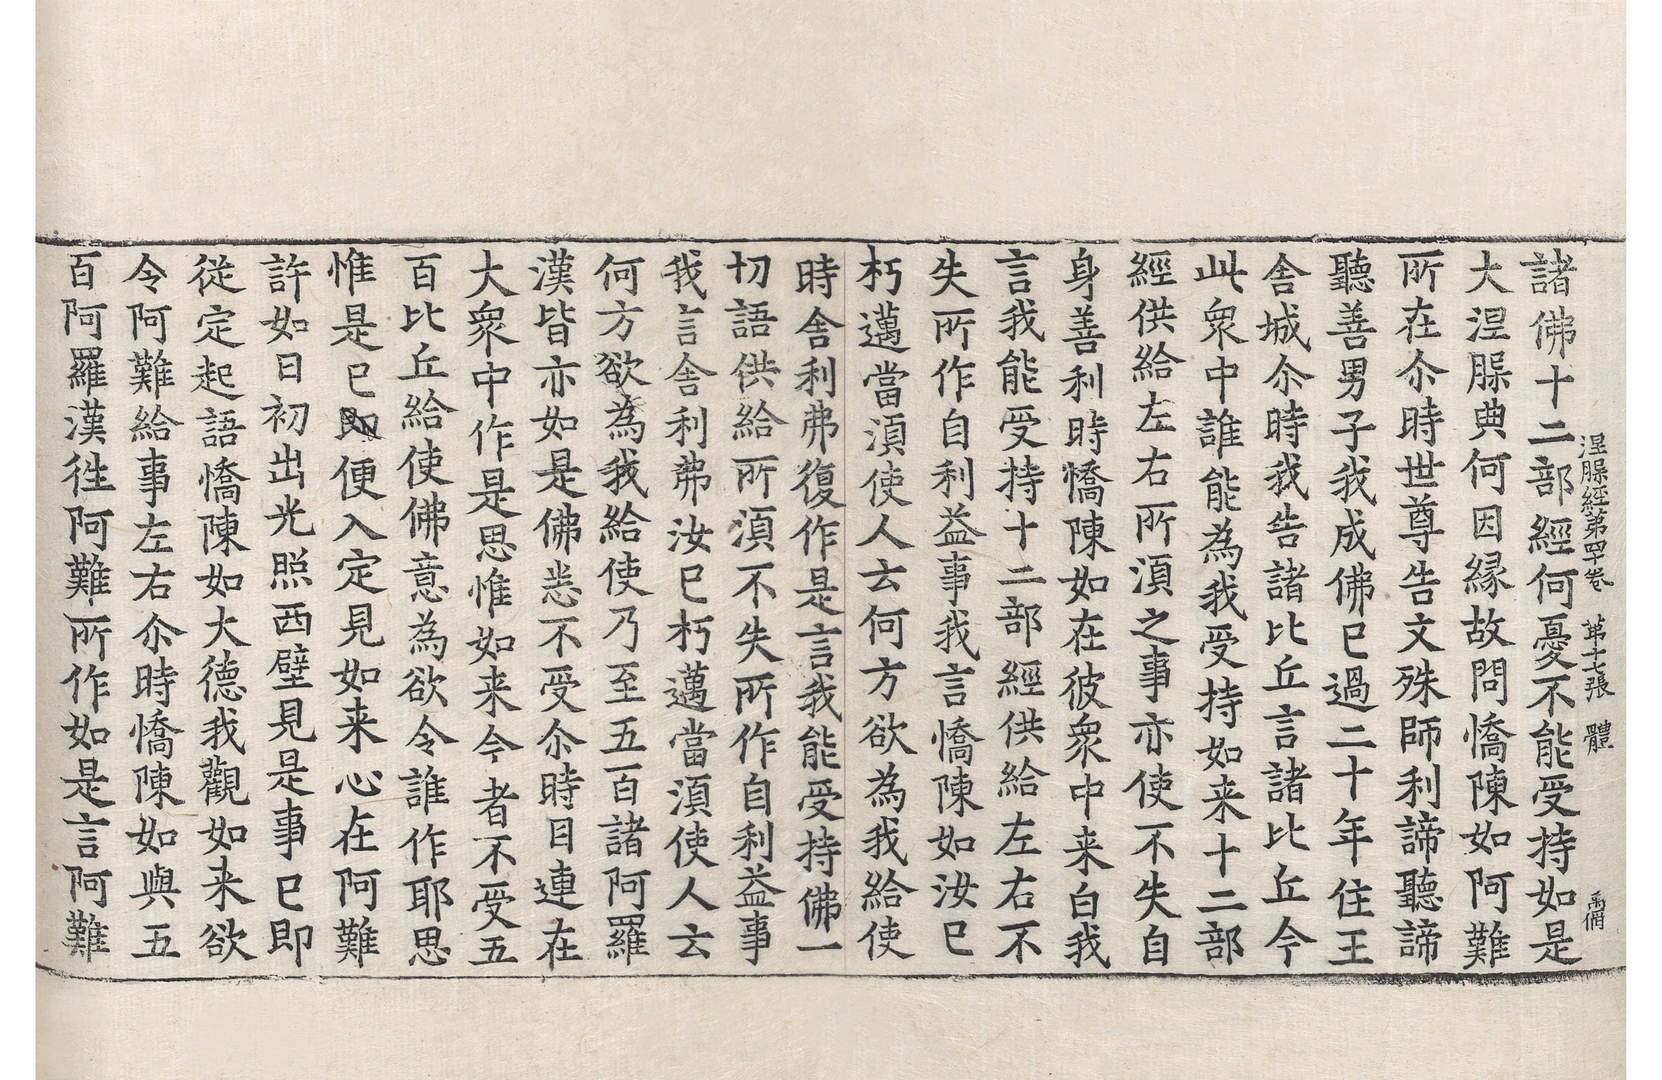 涅槃經第四十卷 第十七張 體
諸佛十二部經何憂不能受持如是
大涅槃典何因縁故問憍陳如阿難
所在尒時世尊告文殊師利諦聽諦
聽善男子我成佛已過二十年住王
舍城尒時我告諸比丘言諸比丘今
此衆中誰能為我受持如来十二部
經供給左右所湏之事亦使不失自
身善利時憍陳如在彼衆中来白我
言我能受持十二部經供給左右不
失所作自利益事我言憍陳如汝已
朽邁當湏使人云何方欲為我給使
時舍利弗復作是言我能受持佛一
切語供給所湏不失所作自利益事
我言舍利弗汝已朽邁當湏使人云
何方欲為我給使乃至五百諸阿羅
漢皆亦如是佛悉不受尒時目連在
大衆中作是思惟如来今者不受五
百比丘給使佛意為欲令誰作耶思
惟是已即便入定見如来心在阿難
許如日初出光照西壁見是事已即
從定起語憍陳如大德我觀如来欲
令阿難給事左右尒時憍陳如與五
百阿羅漢徃阿難所作如是言阿難